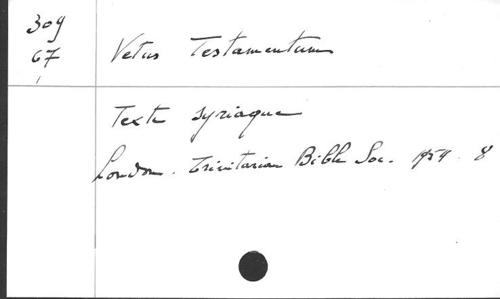 309
67
Vetus Testamentum
Texte syriaque
London. Trinitarian Bible Soc. 1954. 8